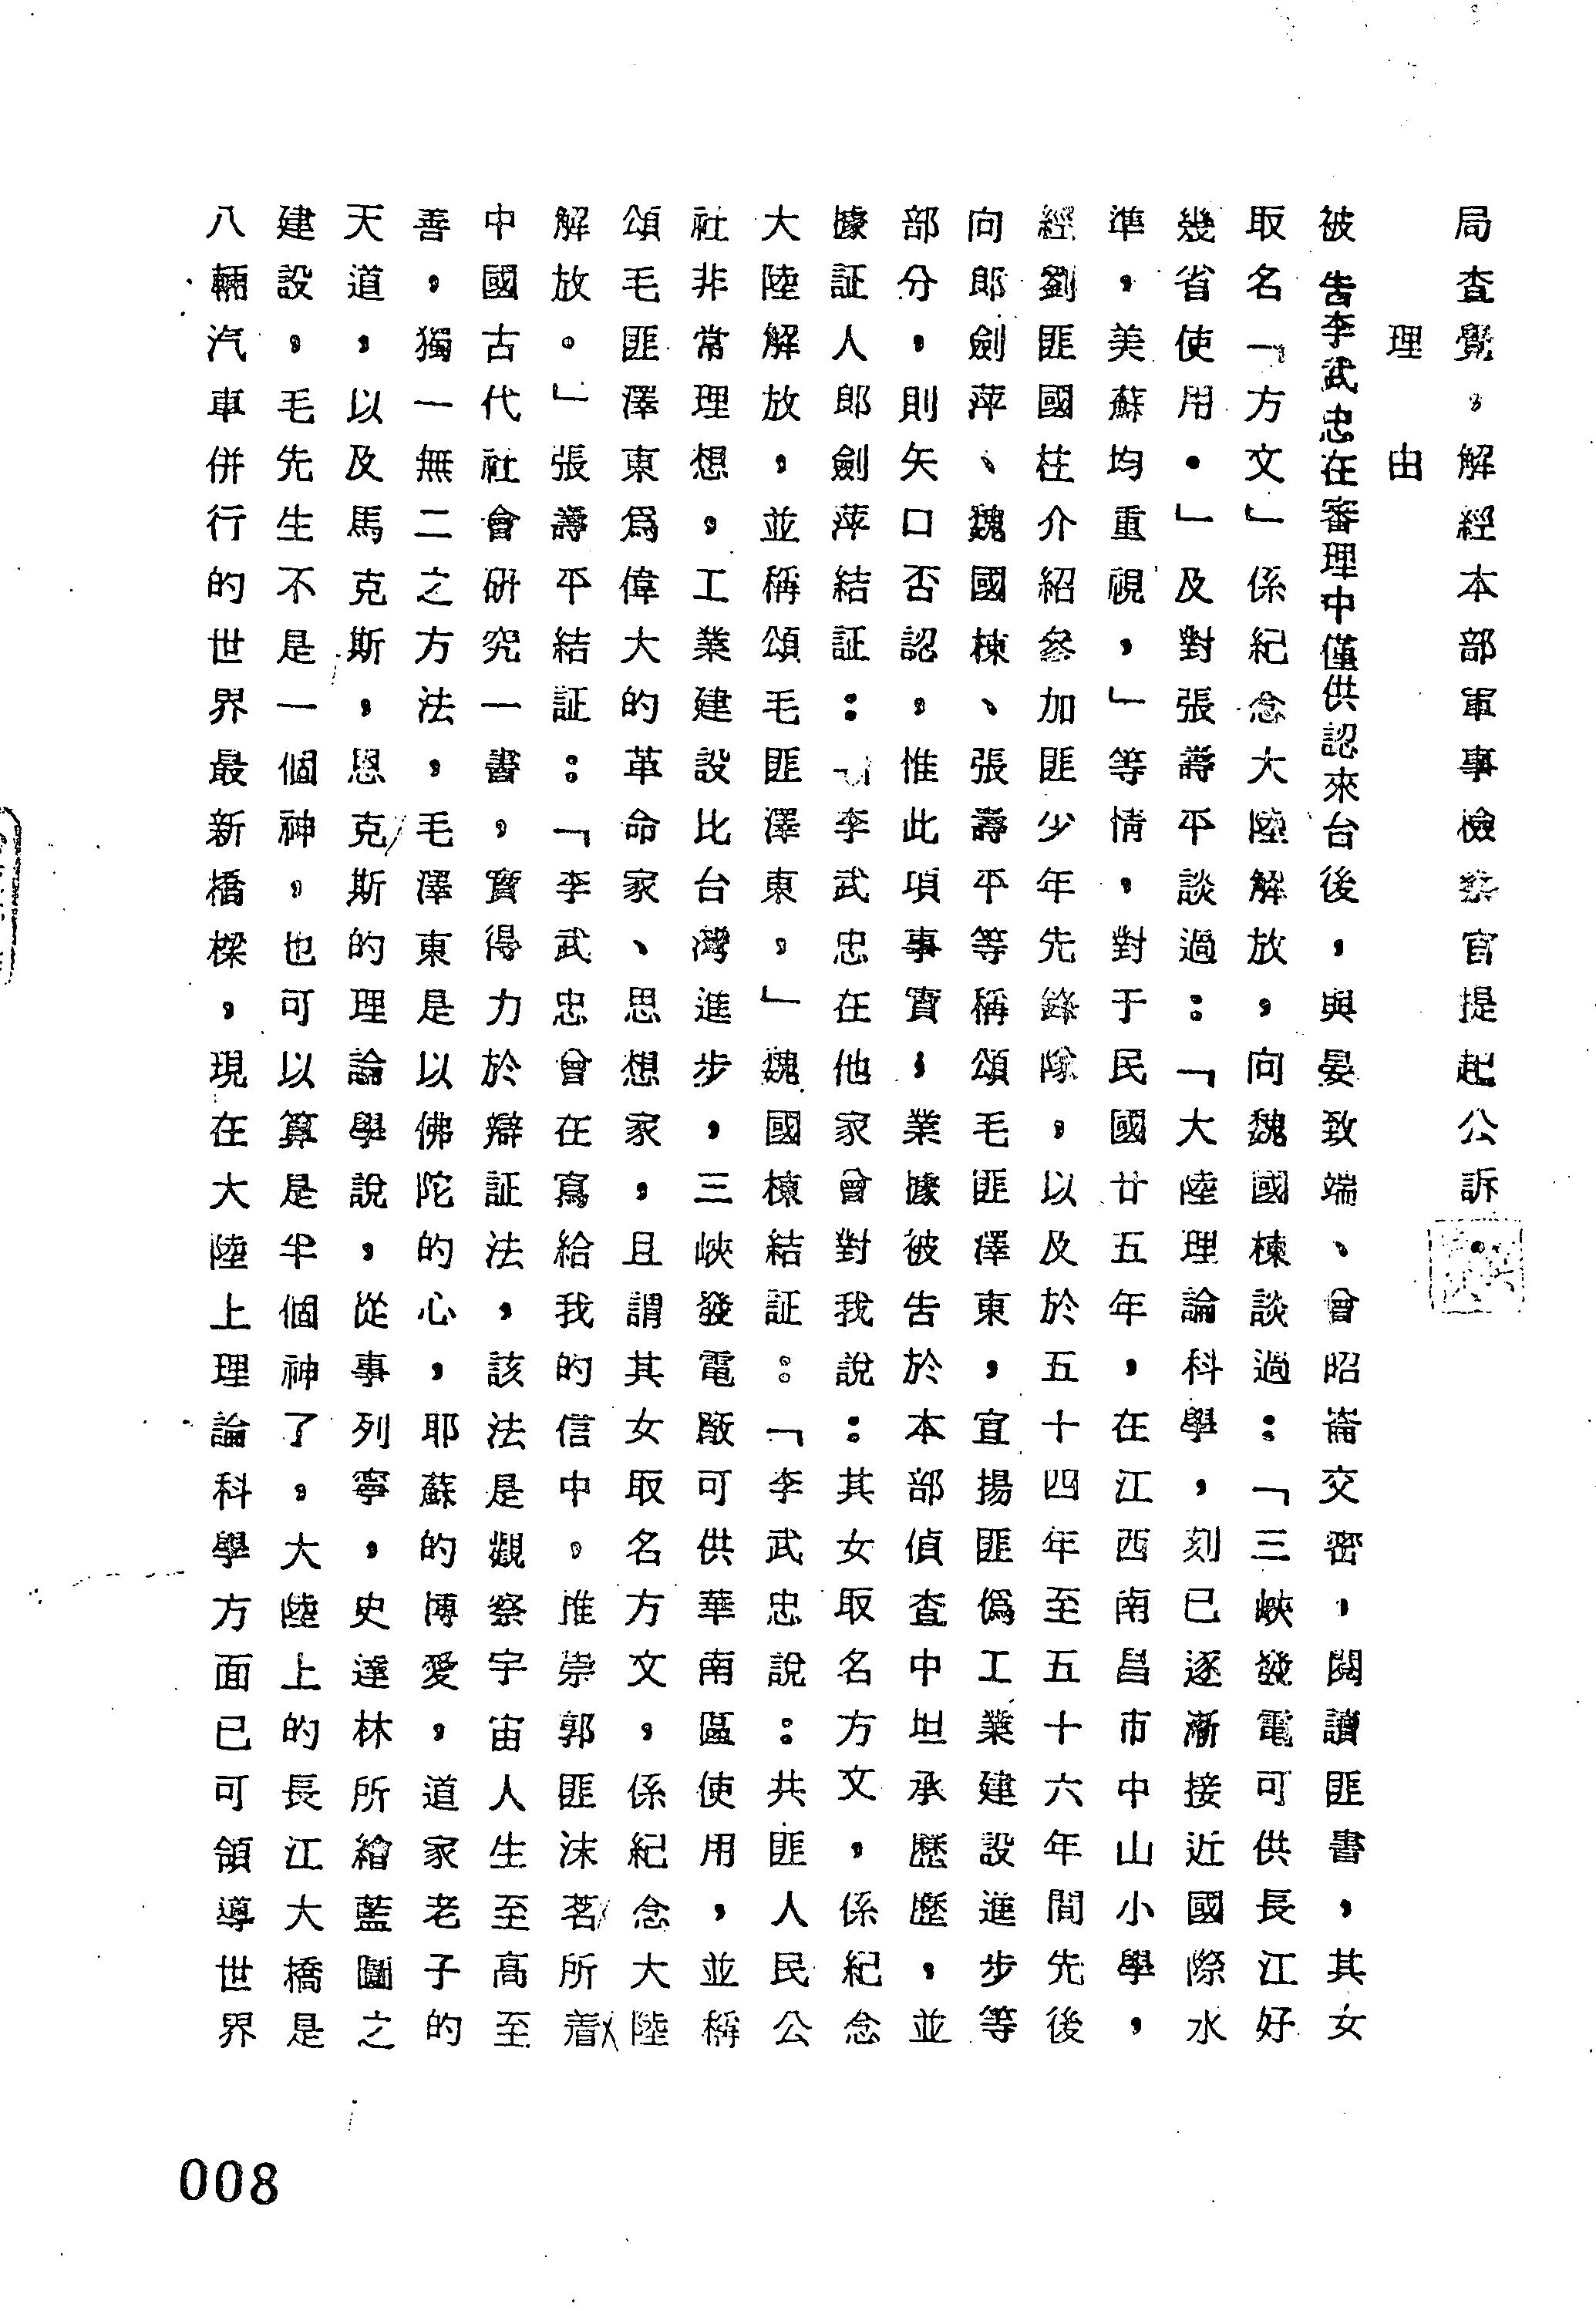 局查覺。解經本部軍事檢察官提起公訴。
理由
被告李武忠在審理中僅供認來台後，與晏致端、曾昭崙交密，閱讀匪書，其女
取名「方文」係紀念大陸解放，向魏國棟談過：「三峽發電可供長江好
幾省使用。」及對張壽平談過：「大陸理論科學，刻已逐漸接近國際水
準，美蘇均重視，」等情，對于民國廿五年，在江西南昌市中山小學，
經劉匪國柱介紹參加匪少年先鋒隊，以及於五十四年至五十六年間先後
向郎劍萍、魏國棟、張壽平等稱頌毛匪澤東，宣揚匪偽工業建設進步等
部分，則矢口否認，惟此項事實，業據被告於本部偵查中坦承歷歷，並
據証人郎劍萍結証：「李武忠在他家曾對我說：其女取名方文，係紀念
大陸解放，並稱頌毛匪澤東。」魏國棟結証：「李武忠說：共匪人民公
社非常理想，工業建設比台灣進步，三峽發電廠可供華南區使用，並稱
頌毛匪澤東為偉大的革命家、思想家，且謂其女取名方文，係紀念大陸
解放。」張壽平結証：「李武忠曾在寫給我的信中。推崇郭匪沫茗所着
中國古代社會研究一書，實得力於辯証法，該法是觀察宇宙人生至高至
善，獨一無二之方法，毛澤東是以佛陀的心，耶蘇的博愛，道家老子的
天道，以及馬克斯，恩克斯的理論學說，從事列寧，史達林所繪藍圖之
建設，毛先生不是一個神，也可以算是半個神了。大陸上的長江大橋是
八輛汽車併行的世界最新橋樑，現在大陸上理論科學方面已可領導世界
008